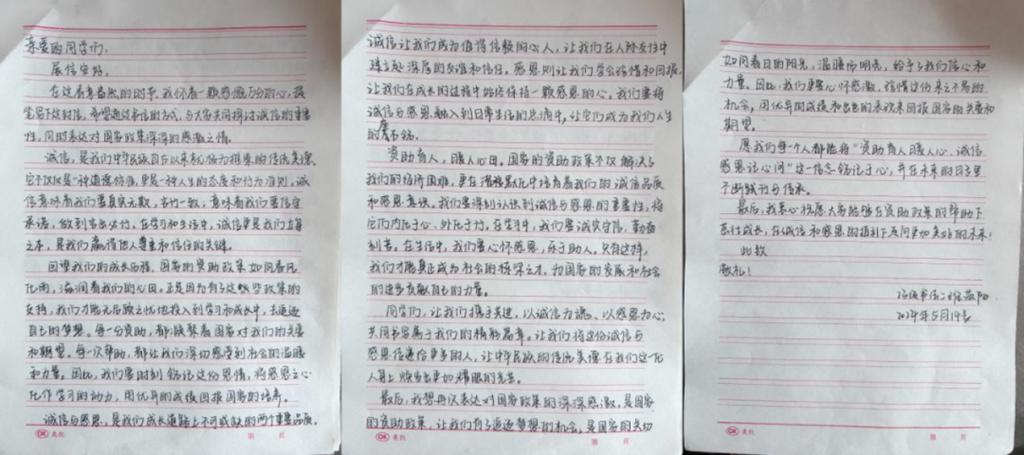 亲爱的同学们:
展信安好。
在这春意盎然的时节,我怀着一颗感激万分的心,提
笔写下这封信,希望通过书信的方式,与大家共同探讨诚信的重要
性,同时表达对国家政策深深的感激之情。
诚信,是我们中华民族自古以来极为推崇的传统美德,
它不仅仅是一种道德标准,更是一种人生的态度和行为准则。诚
信意味着我们要真实无欺,言行一致,意味着我们要信守
承诺,做到言出必行。在学习和生活中,诚信更是我们立身
之本,是我们赢得他人尊重和信任的关键。
回望我们的成长历程,国家的资助政策如同春风
化雨,滋润着我们的心田。正是因为有了这些政策的
支持,我们才能无后顾之忧地投入到学习和成长中,去追逐
自己的梦想。每一分资助,都凝聚着国家对我们的关爱
和期望。每一次帮助,都让我们深切感受到社会的温暖
和力量。因此,我们要时刻铭记这份恩情,将感恩之心
化作学习的动力,用优异的成绩回报国家的培养。
诚信与感恩,是我们成长道路上不可或缺的两个重要品质。
DK 奥秋
第 页
诚信让我们成为值得信赖的人,让我们在人际交往中
建立起深厚的友谊和信任。感恩则让我们学会珍惜和回报,
让我们在成长的过程中始终保持一颗感恩的心。我们要将
诚信与感恩融入到日常生活的点滴中,让它们成为我们人生
的座右铭。
资助育人,暖人心田。国家的资助政策不仅解决了
我们的经济困难,更在潜移默化中培育着我们的诚信品质
和感恩意识。我们要深刻认识到诚信与感恩的重要性,将
它们内化于心,外化于行。在学习中,我们要诚实守信,勤奋
刻苦。在生活中,我们要心怀感恩,乐于助人。只有这样,
我们才能真正成为社会的栋梁之才,为国家的发展和社会
的进步贡献自己的力量。
同学们,让我们携手共进,以诚信为源,以感恩为心,
共同书写属于我们的精彩篇章。让我们将这份诚信与
感恩传递给更多的人,让中华民族的传统美德在我们这一代
人身上焕发出更加耀眼的光芒。
最后,我想再次表达对国家政策的深深感激,是国家
的资助政策,让我们有了追逐梦想的机会,是国家的关切
DK 奥秋
第 页
如同春日的阳光,温暖而明亮,给予了我们信心和
力量。因此,我们更要心怀感激,珍惜这份来之不易的
机会,用优异的成绩和出色的表现来回报国家的关爱和
期望。
愿我们每一个人都能将“资助育人暖人心,诚信
感恩记心间”这一信念铭记于心,并在未来的日子里
不断践行与传承。
最后,我衷心祝愿大家能够在资助政策的帮助下
茁壮成长,在诚信和感恩的指引下走向更加美好的未来!
此致
敬礼!
2024年5月19日
DK 奥秋
第 页